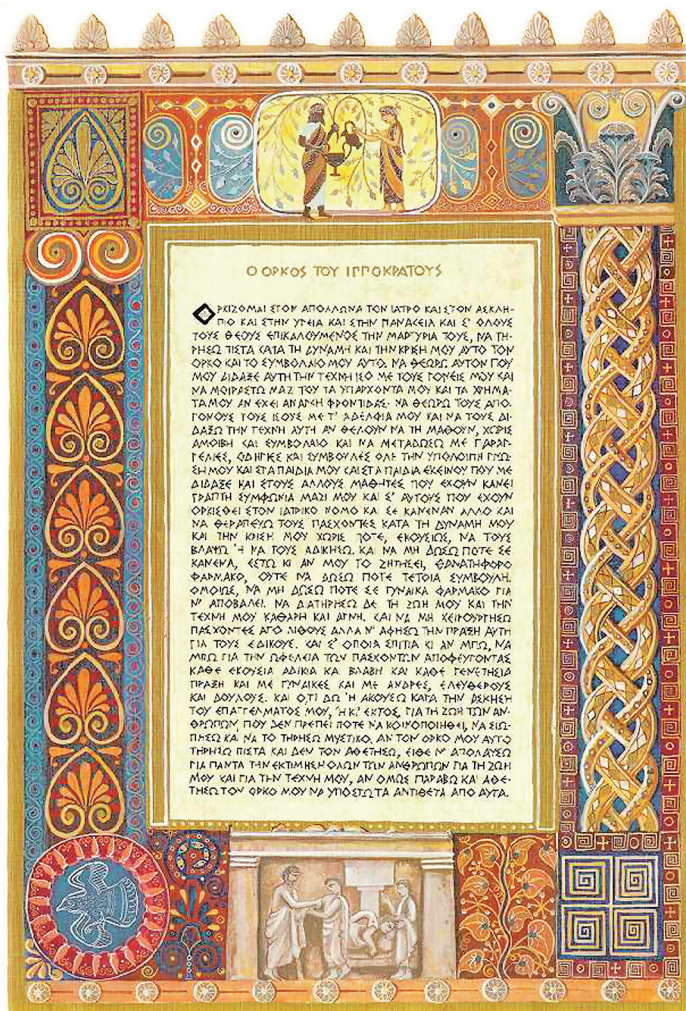 Ο ΟΡΚΟΣ ΤΟΥ ΙΠΠΟΚΡΑΤΟΥΣ
ΟΡΚΙΖΟΜΑΙ ΣΤΟΝ ΑΠΟΛΛΩΝΑ ΤΟΝ ΙΑΤΡΟ ΚΑΙ ΣΤΟΝ ΑΣΚΛΗ-
ΠΙΟ ΚΑΙ ΣΤΗΝ ΥΓΕΙΑ ΚΑΙ ΣΤΗΝ ΠΑΝΑΚΕΙΑ ΚΑΙ Σ' ΟΛΟΥΣ
ΤΟΥΣ ΘΕΟΥΣ ΕΠΙΚΑΛΟΥΜΕΝΟΣ ΤΗΝ ΜΑΡΤΥΡΙΑ ΤΟΥΣ, ΝΑ ΤΗ-
ΡΗΣΩ ΠΙΣΤΑ ΚΑΤΑ ΤΗ ΔΥΝΑΜΗ ΚΑΙ ΤΗΝ ΚΡΙΣΗ ΜΟΥ ΑΥΤΟ ΤΟΝ
ΟΡΚΟ ΚΑΙ ΤΟ ΣΥΜΒΟΛΑΙΟ ΜΟΥ ΑΥΤΟ. ΝΑ ΘΕΩΡΩ ΑΥΤΟΝ ΠΟΥ
ΜΟΥ ΔΙΔΑΞΕ ΑΥΤΗ ΤΗΝ ΤΕΧΝΗ ΙΣΟ ΜΕ ΤΟΥΣ ΓΟΝΕΙΣ ΜΟΥ ΚΑΙ
ΝΑ ΜΟΙΡΑΣΤΩ ΜΑΖΙ ΤΟΥ ΤΑ ΥΠΑΡΧΟΝΤΑ ΜΟΥ ΚΑΙ ΤΑ ΧΡΗΜΑ-
ΤΑ ΜΟΥ ΑΝ ΕΧΕΙ ΑΝΑΓΚΗ ΦΡΟΝΤΙΔΑΣ. ΝΑ ΘΕΩΡΩ ΤΟΥΣ ΑΠΟ-
ΓΟΝΟΥΣ ΤΟΥΣ ΙΣΟΥΣ ΜΕ Τ' ΑΔΕΛΦΙΑ ΜΟΥ ΚΑΙ ΝΑ ΤΟΥΣ ΔΙ-
ΔΑΞΩ ΤΗΝ ΤΕΧΝΗ ΑΥΤΗ ΑΝ ΘΕΛΟΥΝ ΝΑ ΤΗ ΜΑΘΟΥΝ, ΧΩΡΙΣ
ΑΜΟΙΒΗ ΚΑΙ ΣΥΜΒΟΛΑΙΟ ΚΑΙ ΝΑ ΜΕΤΑΔΩΣΩ ΜΕ ΠΑΡΑΓ-
ΓΕΛΙΕΣ, ΟΔΗΓΙΕΣ ΚΑΙ ΣΥΜΒΟΥΛΕΣ ΟΛΗ ΤΗΝ ΥΠΟΛΟΙΠΗ ΓΝΩ-
ΣΗ ΜΟΥ ΚΑΙ ΣΤΑ ΠΑΙΔΙΑ ΜΟΥ ΚΑΙ ΣΤΑ ΠΑΙΔΙΑ ΕΚΕΙΝΟΥ ΠΟΥ ΜΕ
ΔΙΔΑΞΕ ΚΑΙ ΣΤΟΥΣ ΑΛΛΟΥΣ ΜΑΘΗΤΕΣ ΠΟΥ ΕΧΟΥΝ ΚΑΝΕΙ
ΓΡΑΠΤΗ ΣΥΜΦΩΝΙΑ ΜΑΖΙ ΜΟΥ ΚΑΙ Σ' ΑΥΤΟΥΣ ΠΟΥ ΕΧΟΥΝ
ΟΡΚΙΣΘΕΙ ΣΤΟΝ ΙΑΤΡΙΚΟ ΝΟΜΟ ΚΑΙ ΣΕ ΚΑΝΕΝΑΝ ΑΛΛΟ ΚΑΙ
ΝΑ ΘΕΡΑΠΕΥΩ ΤΟΥΣ ΠΑΣΧΟΝΤΕΣ ΚΑΤΑ ΤΗ ΔΥΝΑΜΗ ΜΟΥ
ΚΑΙ ΤΗΝ ΚΡΙΣΗ ΜΟΥ ΧΩΡΙΣ ΠΟΤΕ, ΕΚΟΥΣΙΩΣ, ΝΑ ΤΟΥΣ
ΒΛΑΨΩ Ή ΝΑ ΤΟΥΣ ΑΔΙΚΗΣΩ. ΚΑΙ ΝΑ ΜΗ ΔΩΣΩ ΠΟΤΕ ΣΕ
ΚΑΝΕΝΑ, ΕΣΤΩ ΚΙ ΑΝ ΜΟΥ ΤΟ ΖΗΤΗΣΕΙ, ΘΑΝΑΤΗΦΟΡΟ
ΦΑΡΜΑΚΟ, ΟΥΤΕ ΝΑ ΔΩΣΩ ΠΟΤΕ ΤΕΤΟΙΑ ΣΥΜΒΟΥΛΗ.
ΟΜΟΙΩΣ, ΝΑ ΜΗ ΔΩΣΩ ΠΟΤΕ ΣΕ ΓΥΝΑΙΚΑ ΦΑΡΜΑΚΟ ΓΙΑ
Ν' ΑΠΟΒΑΛΕΙ. ΝΑ ΔΙΑΤΗΡΗΣΩ ΔΕ ΤΗ ΖΩΗ ΜΟΥ ΚΑΙ ΤΗΝ
ΤΕΧΝΗ ΜΟΥ ΚΑΘΑΡΗ ΚΑΙ ΑΓΝΗ. ΚΑΙ ΝΑ ΜΗ ΧΕΙΡΟΥΡΓΗΣΩ
ΠΑΣΧΟΝΤΕΣ ΑΠΟ ΛΙΘΟΥΣ ΑΛΛΑ Ν' ΑΦΗΣΩ ΤΗΝ ΠΡΑΞΗ ΑΥΤΗ
ΓΙΑ ΤΟΥΣ ΕΙΔΙΚΟΥΣ. ΚΑΙ Σ' ΟΠΟΙΑ ΣΠΙΤΙΑ ΚΙ ΑΝ ΜΠΩ, ΝΑ
ΜΠΩ ΓΙΑ ΤΗΝ ΩΦΕΛΕΙΑ ΤΩΝ ΠΑΣΧΟΝΤΩΝ ΑΠΟΦΕΥΓΟΝΤΑΣ
ΚΑΘΕ ΕΚΟΥΣΙΑ ΑΔΙΚΙΑ ΚΑΙ ΒΛΑΒΗ ΚΑΙ ΚΑΘΕ ΓΕΝΕΤΗΣΙΑ
ΠΡΑΞΗ ΚΑΙ ΜΕ ΓΥΝΑΙΚΕΣ ΚΑΙ ΜΕ ΑΝΔΡΕΣ, ΕΛΕΥΘΕΡΟΥΣ
ΚΑΙ ΔΟΥΛΟΥΣ. ΚΑΙ Ο,ΤΙ ΔΩ Ή ΑΚΟΥΣΩ ΚΑΤΑ ΤΗΝ ΑΣΚΗΣΗ
ΤΟΥ ΕΠΑΓΓΕΛΜΑΤΟΣ ΜΟΥ, Ή ΚΙ' ΕΚΤΟΣ, ΓΙΑ ΤΗ ΖΩΗ ΤΩΝ ΑΝ-
ΘΡΩΠΩΝ, ΠΟΥ ΔΕΝ ΠΡΕΠΕΙ ΠΟΤΕ ΝΑ ΚΟΙΝΟΠΟΙΗΘΕΙ, ΝΑ ΣΙΩ-
ΠΗΣΩ ΚΑΙ ΝΑ ΤΟ ΤΗΡΗΣΩ ΜΥΣΤΙΚΟ. ΑΝ ΤΟΝ ΟΡΚΟ ΜΟΥ ΑΥΤΟ
ΤΗΡΗΣΩ ΠΙΣΤΑ ΚΑΙ ΔΕΝ ΤΟΝ ΑΘΕΤΗΣΩ, ΕΙΘΕ Ν' ΑΠΟΛΑΥΣΩ
ΓΙΑ ΠΑΝΤΑ ΤΗΝ ΕΚΤΙΜΗΣΗ ΟΛΩΝ ΤΩΝ ΑΝΘΡΩΠΩΝ ΓΙΑ ΤΗ ΖΩΗ
ΜΟΥ ΚΑΙ ΓΙΑ ΤΗΝ ΤΕΧΝΗ ΜΟΥ, ΑΝ ΟΜΩΣ ΠΑΡΑΒΩ ΚΑΙ ΑΘΕ-
ΤΗΣΩ ΤΟΝ ΟΡΚΟ ΜΟΥ ΝΑ ΥΠΟΣΤΩ ΤΑ ΑΝΤΙΘΕΤΑ ΑΠΟ ΑΥΤΑ.